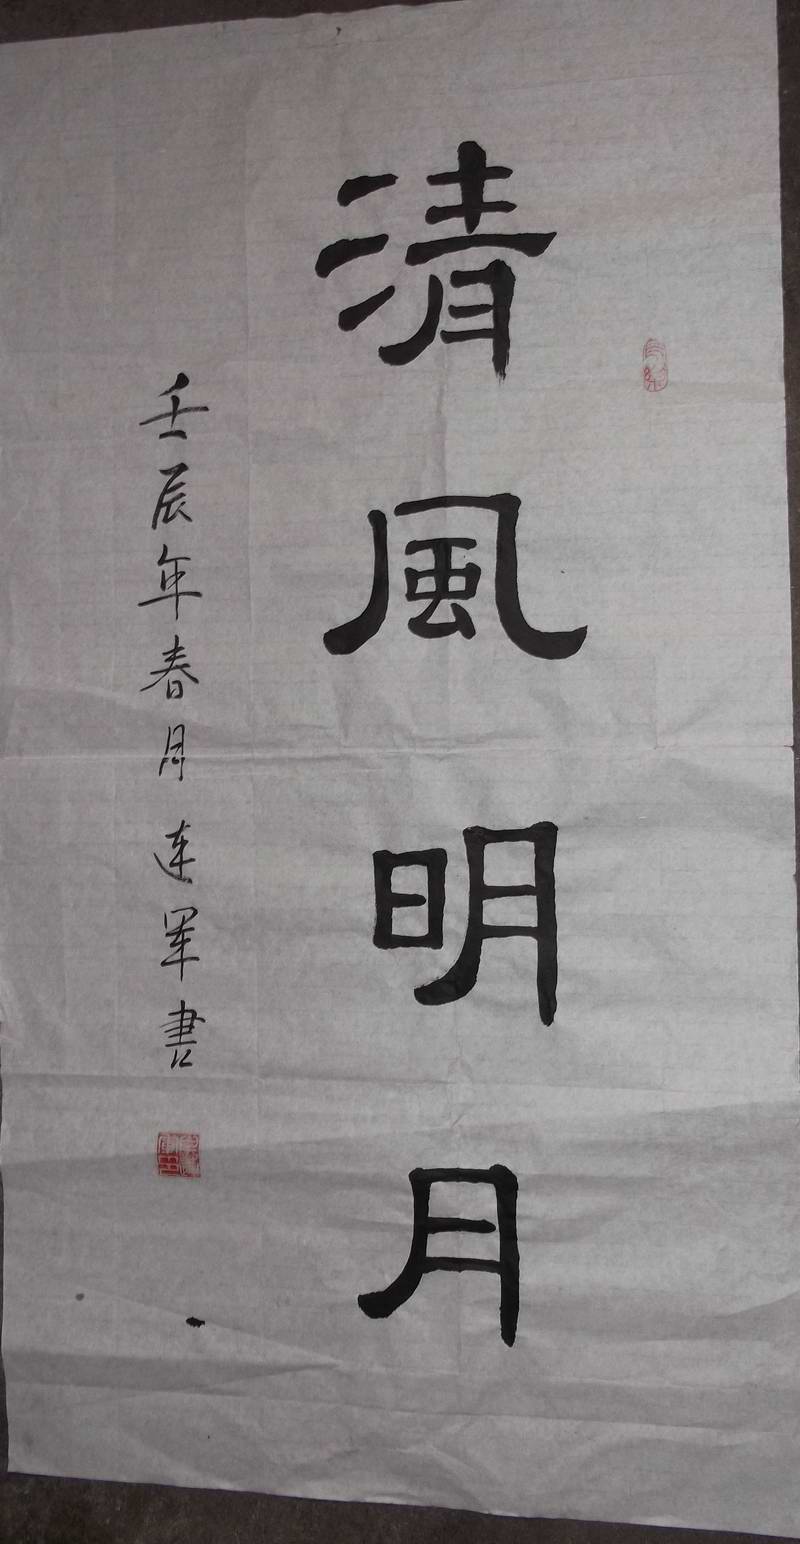 清風明月
壬辰年春月连軍書